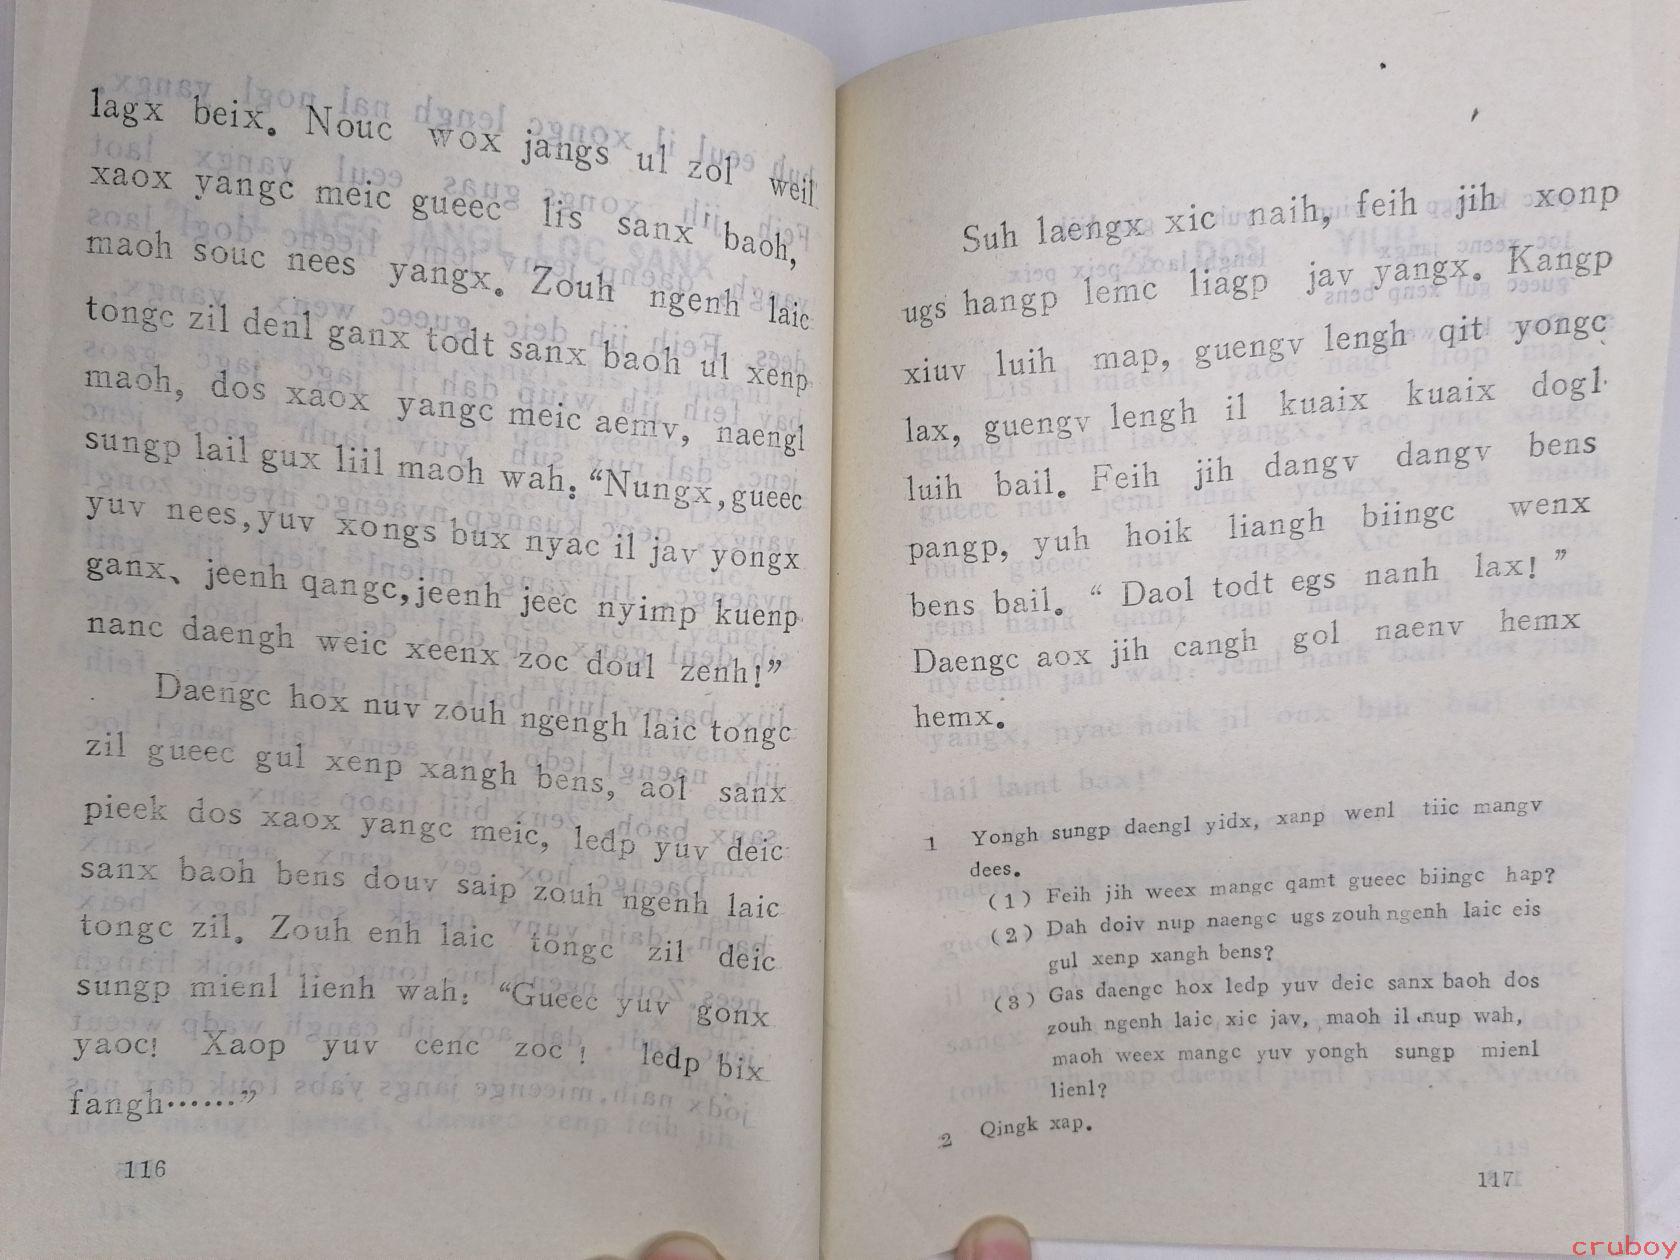 lagx beix. Nouc wox jangs ul zol weil
xaox yangc meic gueec lis sanx baoh,
maoh souc nees yangx. Zouh ngenh laic
tongc zil denl ganx todt sanx baoh ul xenp
maoh, dos xaox yangc meic aemv, naengl
sungp lail gux liil maoh wah: “Nungx, gueec
yuv nees, yuv xongs bux nyac il jav yongx
ganx、jeenh qangc, jeenh jeec nyimp kuenp
nanc daengh weic xeenx zoc doul zenh!”
Daengc hox nuv zouh ngengh laic tongc
zil gueec gul xenp xangh bens, aol sanx
pieek dos xaox yangc meic, ledp yuv deic
sanx baoh bens douv saip zouh ngenh laic
tongc zil. Zouh enh laic tongc zil deic
sungp mienl lienh wah: “Gueec yuv gonx
yaoc! Xaop yuv cenc zoc! ledp bix
fangh……”
116
Suh laengx xic naih, feih jih xonp
ugs hangp lemc liagp jav yangx. Kangp
xiuv luih map, guengv lengh qit yongc
lax, guengv lengh il kuaix kuaix dogl
luih bail. Feih jih dangv dangv bens
pangp, yuh hoik liangh biingc wenx
bens bail. “Daol todt egs nanh lax!”
Daengc aox jih cangh gol naenv hemx
hemx.
1 Yongh sungp daengl yidx, xanp wenl tiic mangv
dees.
(1) Feih jih weex mangc qamt gueec biingc hap?
(2) Dah doiv nup naengc ugs zouh ngenh laic eis
gul xenp xangh bens?
(3) Gas daengc hox ledp yuv deic sanx baoh dos
zouh ngenh laic xic jav, maoh il nup wah,
maoh weex mangc yuv yongh sungp mienl
lienl?
2 Qingk xap.
117
cruboy